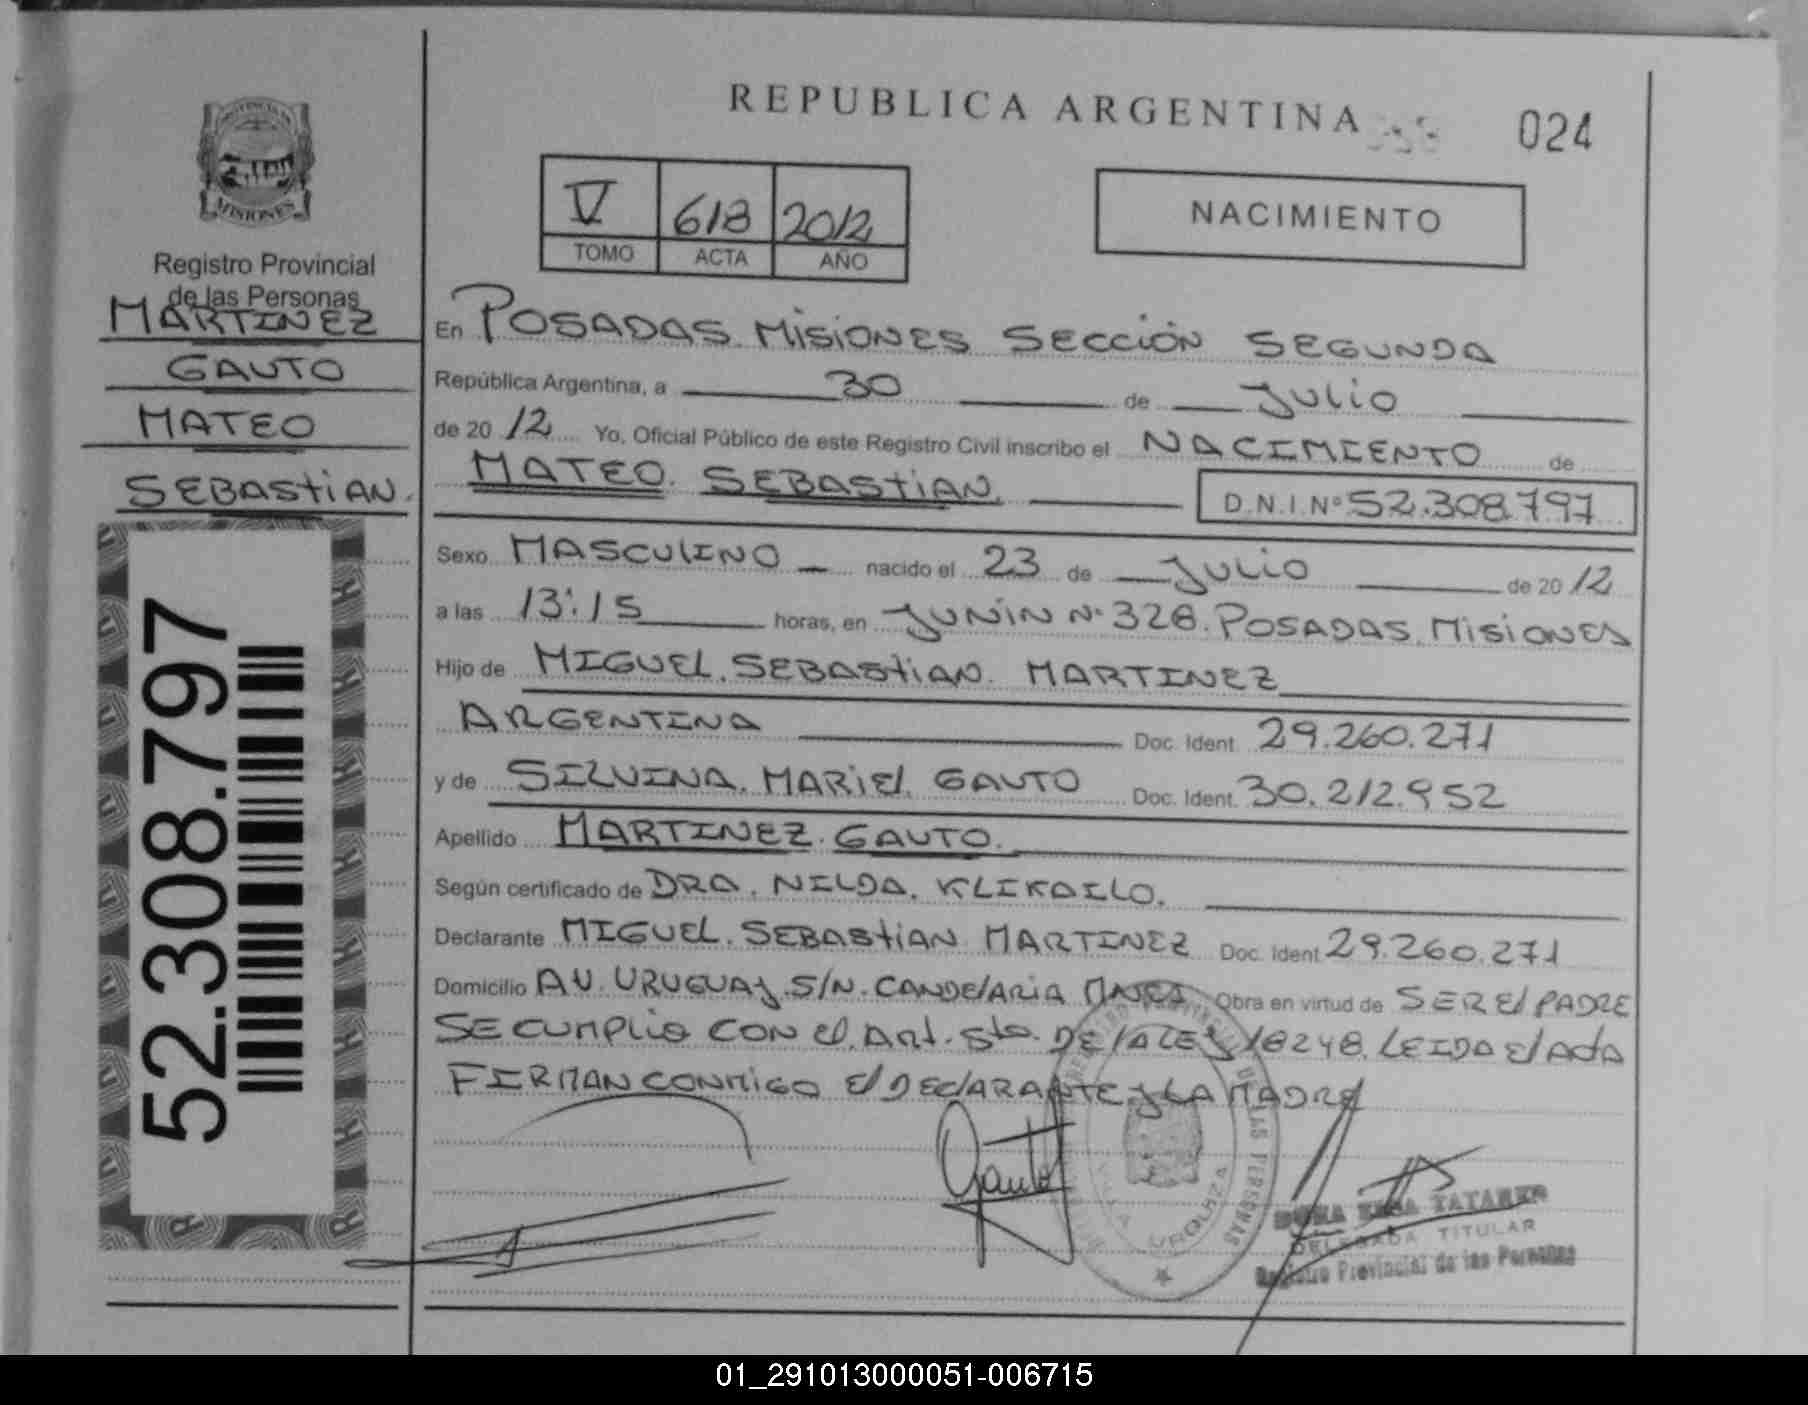 REPUBLICA ARGENTINA
024
PROVINCIA DE
MISIONES
Registro Provincial
de las Personas
MARTINEZ
GAUTO
MATEO
SEBASTIAN.
52.308.797
V 618 2012
TOMO ACTA AÑO
NACIMIENTO
En POSADAS. MISIONES SECCIÓN SEGUNDA
República Argentina, a 30 de JULIO
de 20 12 Yo, Oficial Público de este Registro Civil inscribo el NACIMIENTO de
MATEO. SEBASTIAN. D.N.I.Nº 52.308.797
Sexo MASCULINO nacido el 23 de JULIO de 20 12
a las 13:15 horas, en JUNÍN Nº 328. POSADAS. MISIONES
Hijo de MIGUEL. SEBASTIAN. MARTINEZ
ARGENTINA Doc. Ident. 29.260.271
y de SILVINA. MARIEL. GAUTO Doc. Ident. 30.212.952
Apellido MARTINEZ. GAUTO.
Según certificado de DRA. NILDA.
Declarante MIGUEL. SEBASTIAN. MARTINEZ Doc. Ident. 29.260.271
Domicilio AV. URUGUAY. S/N. CANDELARIA Obra en virtud de SER EL PADRE
SE CUMPLIO CON EL. ART. 5to. DE LA LEY 18248. LEIDA EL ACTA
FIRMAN CONMIGO EL DECLARANTE Y LA MADRE
Gauto
VILLA URQUIZA
TATAREN
DELEGADA TITULAR
Registro Provincial de las Personas
01_291013000051-006715